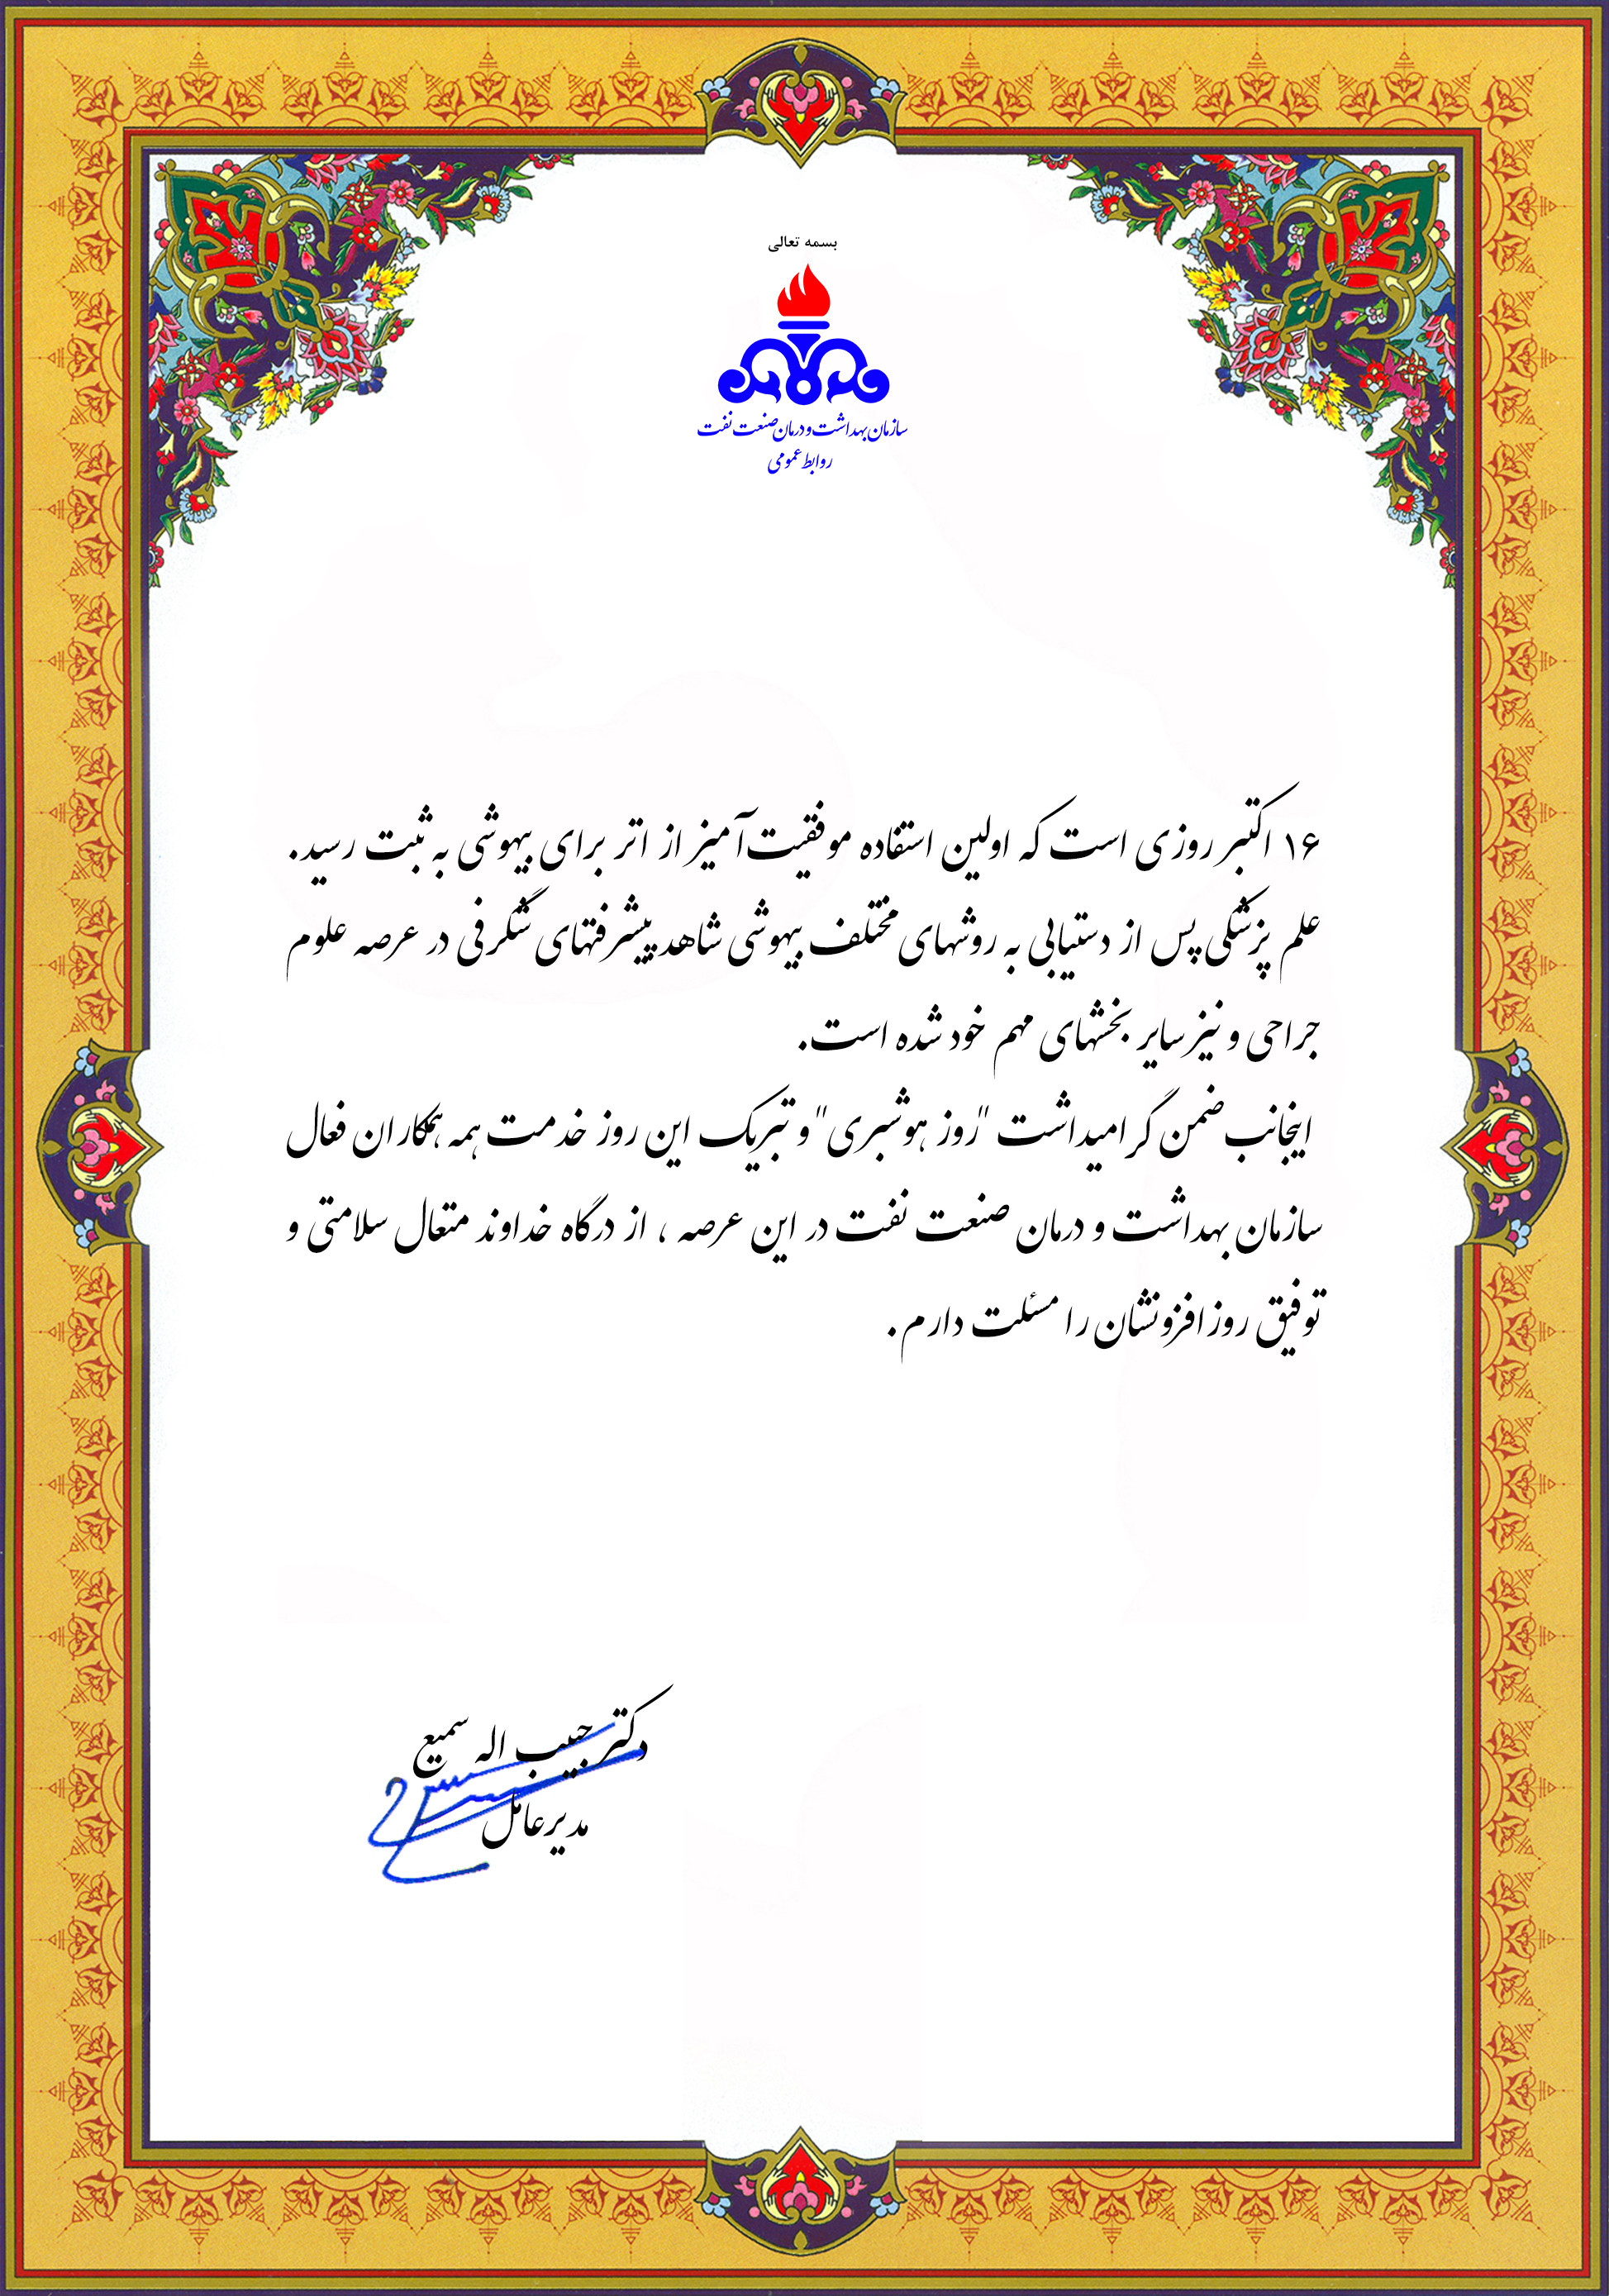 بسمه تعالی
سازمان بهداشت و درمان صنعت نفت
روابط عمومی
۱۶ اکتبر روزی است که اولین استفاده موفقیت‌آمیز از اتر برای بیهوشی به ثبت رسید.
علم پزشکی پس از دستیابی به روشهای مختلف بیهوشی شاهد پیشرفتهای شگرفی در عرصه علوم
جراحی و نیز سایر بخشهای مهم خود شده است.
اینجانب ضمن گرامیداشت "روز هوشبری" و تبریک این روز خدمت همه همکاران فعال
سازمان بهداشت و درمان صنعت نفت در این عرصه ، از درگاه خداوند متعال سلامتی و
توفیق روزافزونشان را مسئلت دارم .
دکتر حبیب اله سمیع
مدیرعامل